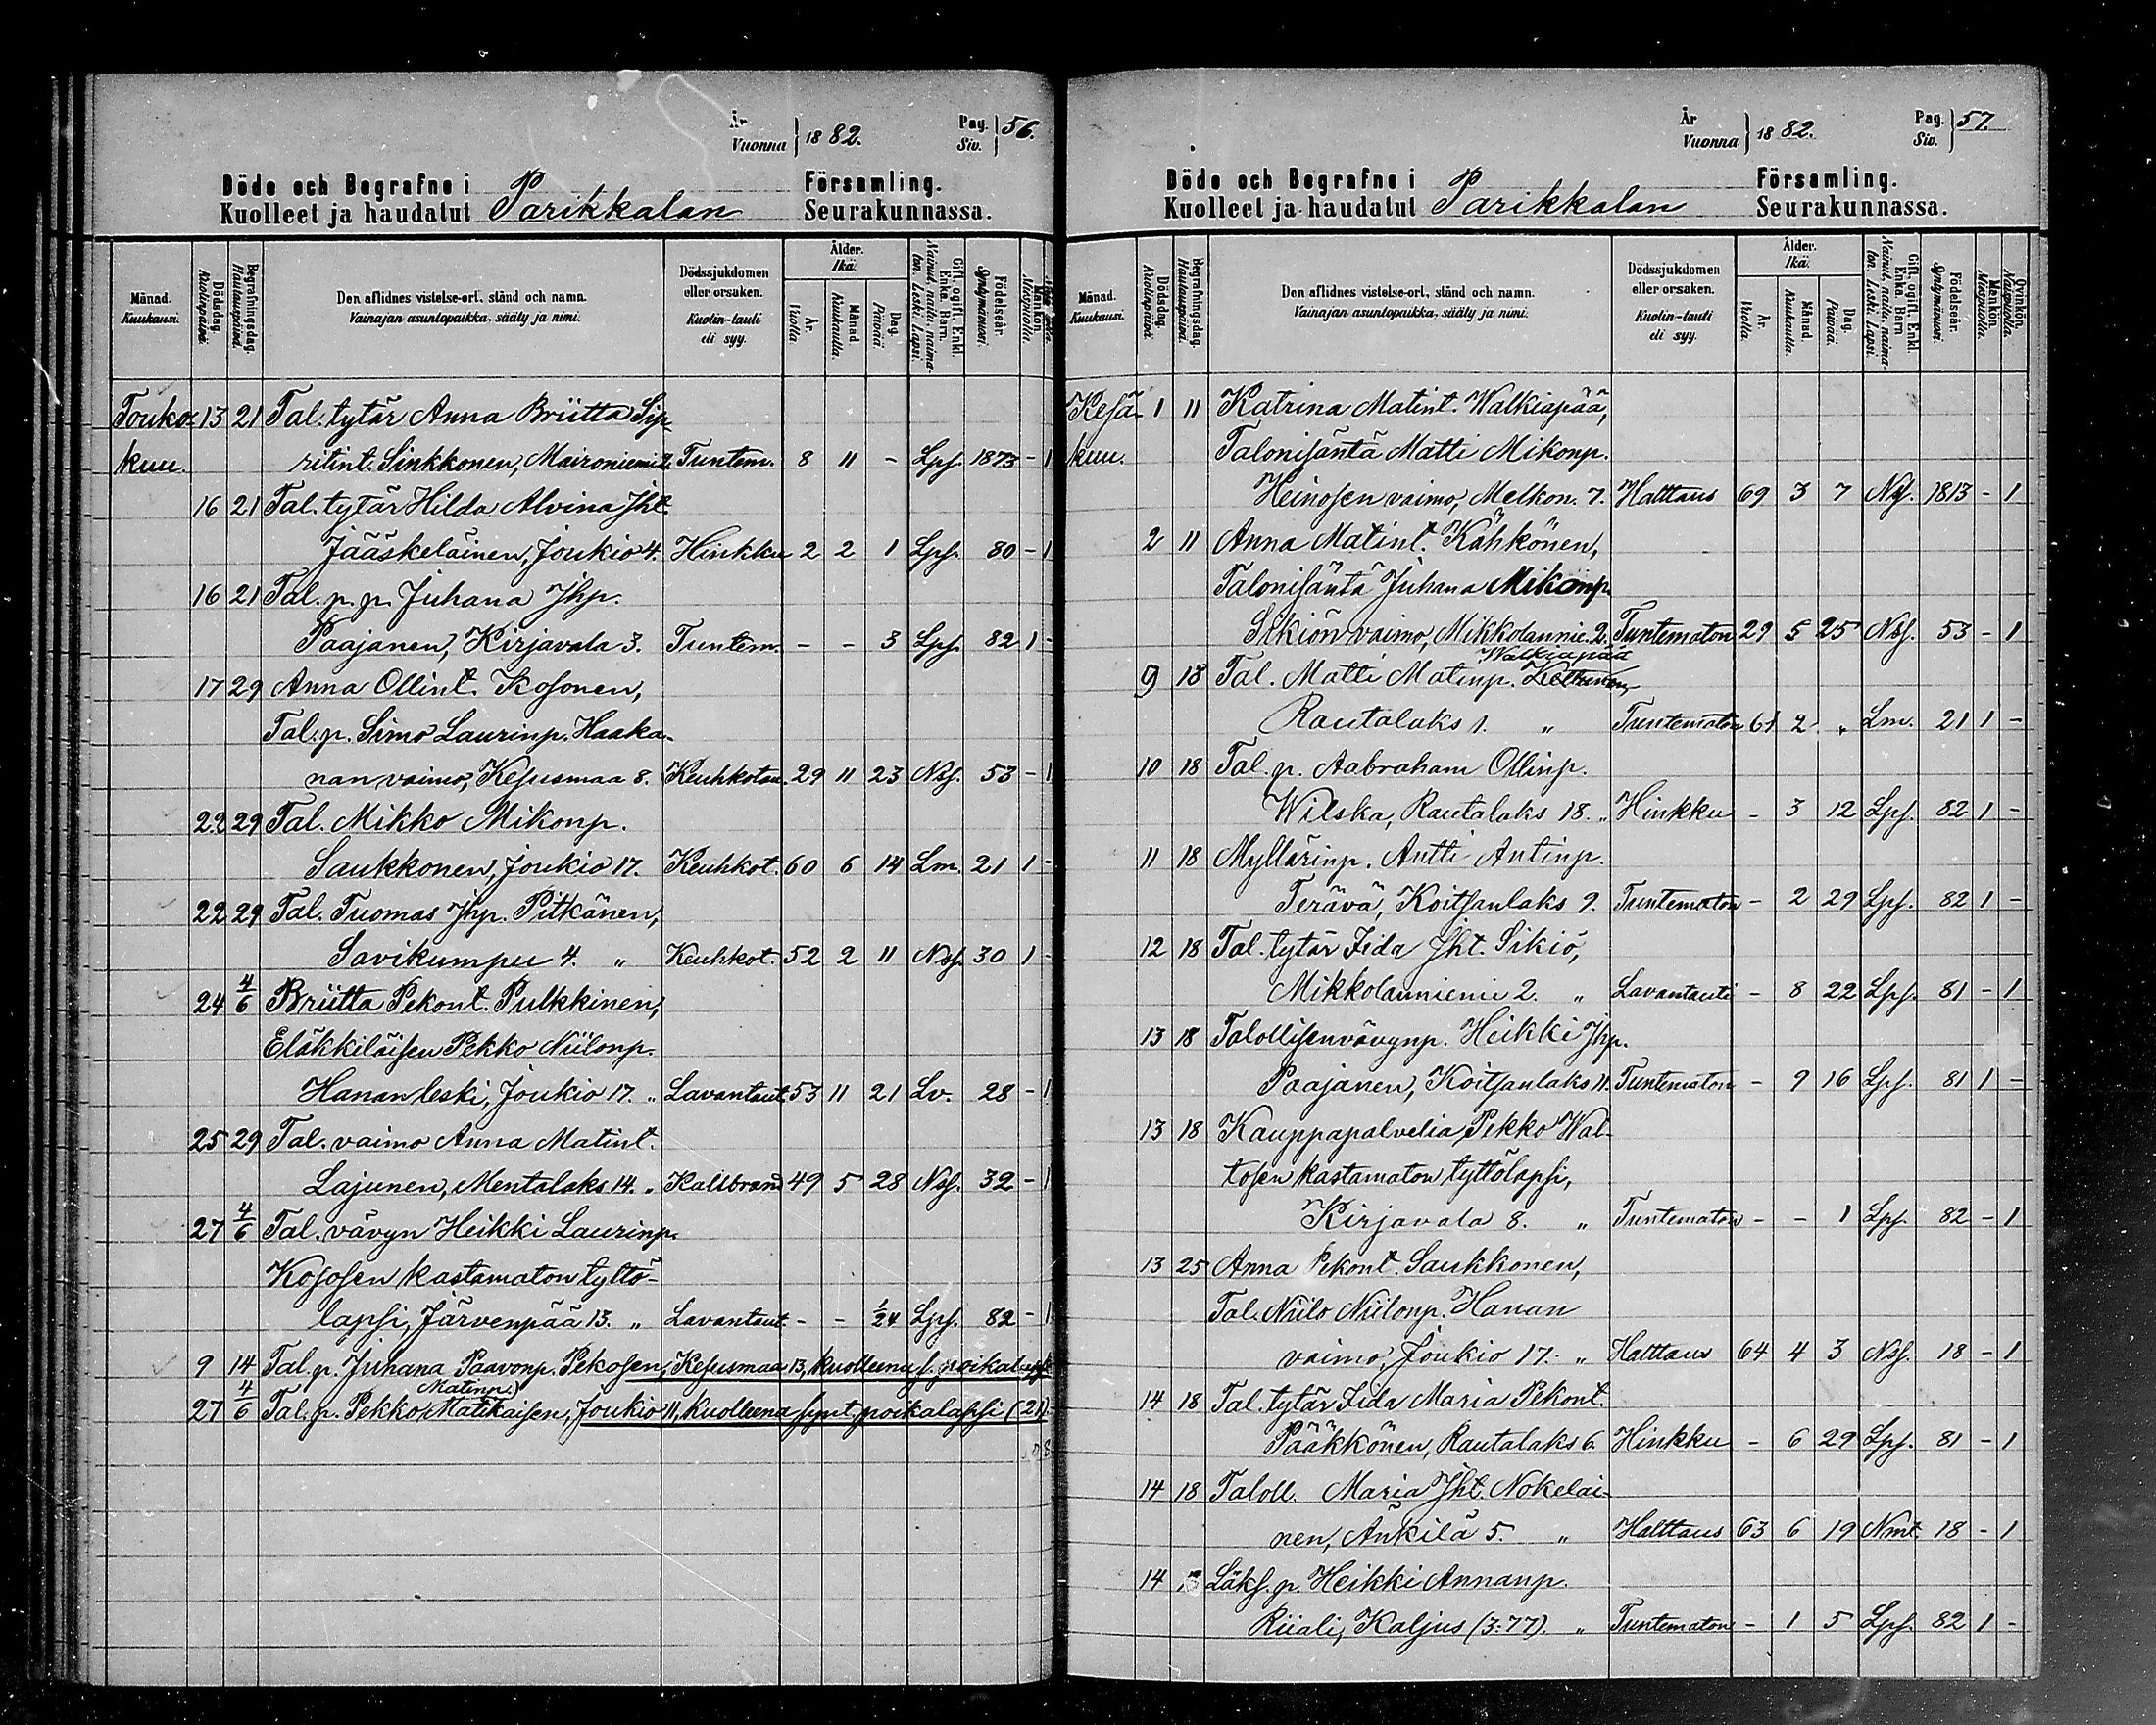 År
Vuonna 1882.
Pag.
Siv. 56.
Döde och Begrafne i Församling.
Kuolleet ja haudatut Parikkalan Seurakunnassa.
Månad. Kuukausi.
Dödsdag. Kuolinpäivä.
Begrafningsdag. Hautauspäivä.
Den aflidnes vistelse-ort, stånd och namn.
Vainajan asuntopaikka, sääty ja nimi.
Dödssjukdomen eller orsaken.
Kuolin-tauti eli syy.
Ålder. Ikä.
År. Vuotta.
Månad. Kuukautta.
Dag. Päivää.
Gift, ogift, Enkl. Enka. Barn.
Nainut, naitu, naimaton. Leski. Lapsi.
Födelseår. Syntymävuosi.
Mankön. Miespuolia.
Touko- 13 21 Tal. tytär Anna Briitta Sip-
kuu. ritint. Sinkkonen, Maironiemi 2. Tuntem. 8 11 - Lps. 1873 - 1
16 21 Tal. tytär Hilda Alvina Jht.
Jääskeläinen, Joukio 4. Hinkku 2 2 1 Lps. 80 - 1
16 21 Tal. p. p. Juhana Jhp.
Paajanen, Kirjavala 3. Tuntem. - - 3 Lps. 82 1 -
17 29 Anna Ollint. Kosonen,
Tal. p. Simo Laurinp. Haaka-
nan vaimo, Kesusmaa 8. Keuhkotau. 29 11 23 Nsf. 53 - 1
22 29 Tal. Mikko Mikonp.
Saukkonen, Joukio 17. Keuhkot. 60 6 14 Lm. 21 1 -
22 29 Tal. Tuomas Jhp. Pitkänen,
Savikumpu 4. " Keuhkot. 52 2 11 Nsf. 30 1 -
24 4/6 Briitta Pekont. Pulkkinen,
Eläkkiläisen Pekko Niilonp.
Hanan leski, Joukio 17. " Lavantaut. 53 11 21 Lv. 28 - 1
25 29 Tal. vaimo Anna Matint.
Lajunen, Mentalaks 14. " Kallbrand 49 5 28 Nsf. 32 - 1
27 4/6 Tal. vävyn Heikki Laurinp.
Kososen kastamaton tyttö-
lapsi, Järvenpää 13. " Lavantaut. - - 1/24 Lps. 82 - 1
9 14 Tal. p. Juhana Paavonp. Pekosen, Kesusmaa 13, kuolleena s. poikalapsi
Matinp.
27 4/6 Tal. p. Pekko Matikaisen, Joukio 11, kuolleena synt. poikalapsi (21).
År
Vuonna 1882.
Pag.
Siv. 57.
Döde och Begrafne i Församling.
Kuolleet ja haudatut Parikkalan Seurakunnassa.
Månad. Kuukausi.
Dödsdag. Kuolinpäivä.
Begrafningsdag. Hautauspäivä.
Den aflidnes vistelse-ort, stånd och namn.
Vainajan asuntopaikka, sääty ja nimi.
Dödssjukdomen eller orsaken.
Kuolin-tauti eli syy.
Ålder. Ikä.
År. Vuotta.
Månad. Kuukautta.
Dag. Päivää.
Gift, ogift, Enkl. Enka. Barn.
Nainut, naitu, naimaton. Leski. Lapsi.
Födelseår. Syntymävuosi.
Mankön. Miespuolia.
Qvinkön. Naispuolia.
Kesä- 1 11 Katrina Matint. Walkiapää,
kuu. Talonisäntä Matti Mikonp.
Heinosen vaimo, Melkon. 7. Halttaus 69 3 7 Nsf. 1813 - 1
2 11 Anna Matint. Kähkönen,
Talonisäntä Juhana Mikonp.
Sikiön vaimo, Mikkolannie. 2. Tuntematon 29 5 25 Nsf. 53 - 1
Walkiapää
9 18 Tal. Matti Matinp.
Rautalaks 1. " Tuntematon 61 2 " Lm. 21 1 -
10 18 Tal. p. Aabraham Ollinp.
Wilska, Rautalaks 18. " Hinkku - 3 12 Lps. 82 1 -
11 18 Myllärinp. Antti Antinp.
Terävä, Koitsanlaks 9. Tuntematon - 2 29 Lps. 82 1 -
12 18 Tal. tytär Iida Jht. Sikiö,
Mikkolanniemi 2. " Lavantauti - 8 22 Lps. 81 - 1
13 18 Talollisenvävynp. Heikki Jhp.
Paajanen, Koitsanlaks 11. Tuntematon - 9 16 Lps. 81 1 -
13 18 Kauppapalvelia Pekko Wal-
tosen kastamaton tyttölapsi,
Kirjavala 8. " Tuntematon - - 1 Lps. 82 - 1
13 25 Anna Pekont. Saukkonen,
Tal. Niilo Niilonp. Hanan
vaimo, Joukio 17. " Halttaus 64 4 3 Nsf. 18 - 1
14 18 Tal. tytär Iida Maria Pekont.
Pääkkönen, Rautalaks 6. Hinkku - 6 29 Lps. 81 - 1
14 18 Taloll. Maria Jht. Nokelai-
nen, Änkilä 5. " Halttaus 63 6 19 Nmt. 18 - 1
14 Läks. p. Heikki Annanp.
Riiali, Kaljus (3:77). " Tuntematon - 1 5 Lps. 82 1 -